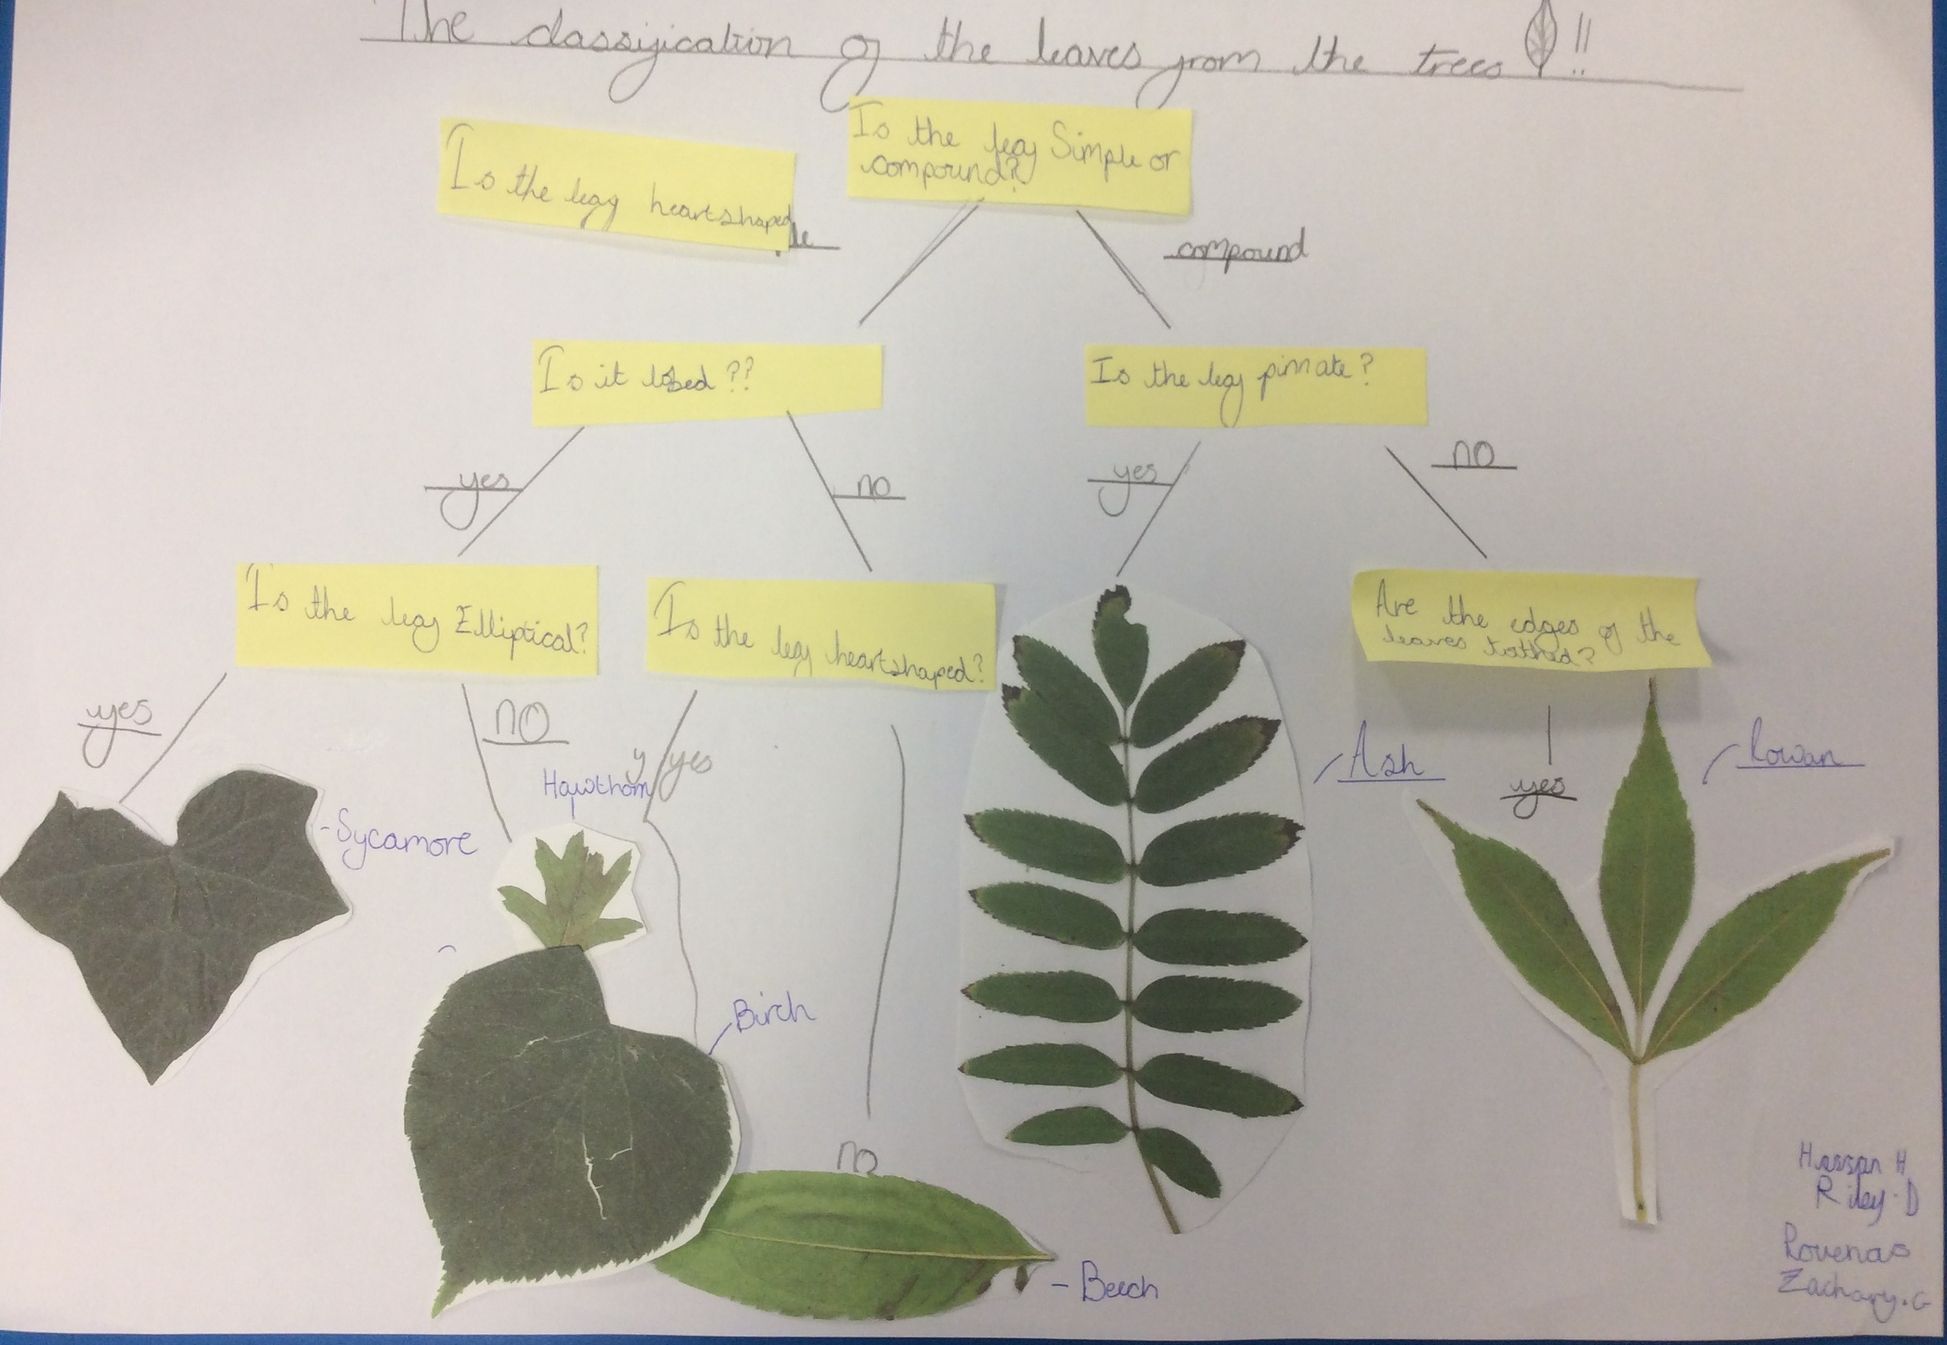 The classification of the leaves from the trees !!
Is the leaf Simple or
compound?
Is the leaf heartshaped
le
compound
Is it lobed ??
Is the leaf pinnate?
yes
no
yes
no
Is the leaf Elliptical?
Is the leaf heartshaped?
Are the edges of the
leaves tothed?
yes
no
y/yes
yes
Hawthorn
Sycamore
Ash
Rowan
Birch
no
Beech
Hassan H
Riley.D
Rovenas
Zachary.G